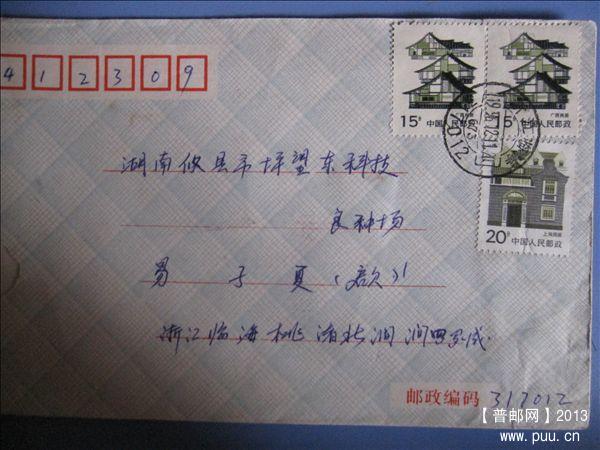 412309
15分 中国人民邮政
15分 广西民居 中国人民邮政
湖南攸县市坪望东科技
良种场
20分 上海民居 中国人民邮政
易子夏(款)收
浙江临海桃渚北涧
邮政编码 317012
【普邮网】2013
www.puu.cn